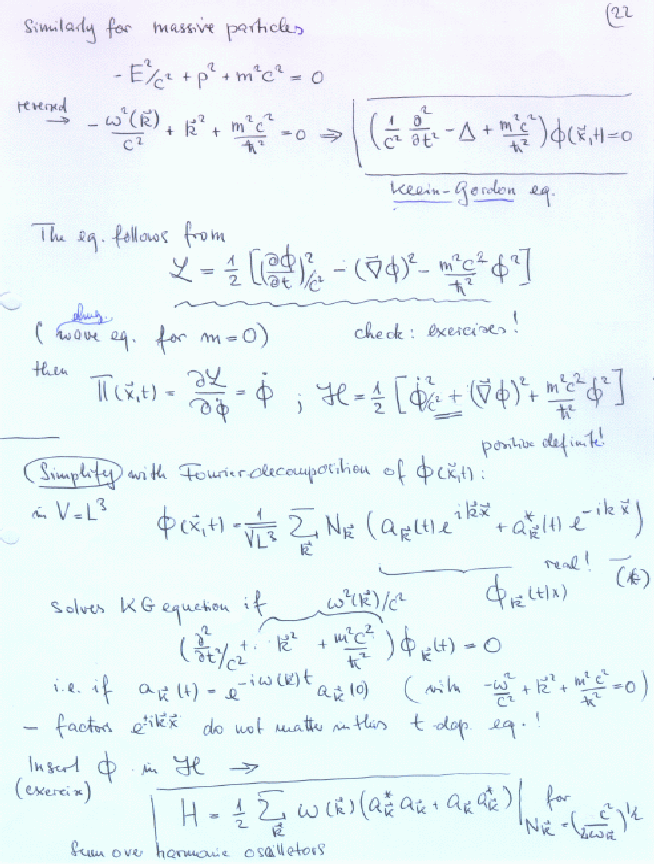 (22
Similarly for massive particles
- E²/c² + p² + m²c² = 0
reversed → - ω²(k⃗)/c² + k⃗² + m²c²/ħ² = 0 ⇒ (1/c² ∂²/∂t² - Δ + m²c²/ħ²) ϕ(x⃗,t) = 0
Klein-Gordon eq.
The eq. follows from
ℒ = 1/2 [(∂ϕ/∂t)²/c² - (∇⃗ϕ)² - m²c²/ħ² ϕ²]
( wave eq. for m=0) check: exercises!
then
Π(x⃗,t) = ∂ℒ/∂ϕ̇ = ϕ̇ ; ℋ = 1/2 [ϕ̇²/c² + (∇⃗ϕ)² + m²c²/ħ² ϕ²]
positive definite!
Simplify with Fourier decomposition of ϕ(x⃗,t):
in V=L³ ϕ(x⃗,t) = 1/√L³ Σ_k⃗ N_k⃗ (a_k⃗(t) e^{ik⃗x⃗} + a*_k⃗(t) e^{-ik⃗x⃗})
real! (*)
ϕ_k⃗(t,x)
solves KG equation if ω²(k⃗)/c²
(∂²/∂t²/c² + k⃗² + m²c²/ħ²) ϕ_k⃗(t) = 0
i.e. if a_k⃗(t) = e^{-iω(k)t} a_k⃗(0) (with -ω²/c² + k⃗² + m²c²/ħ² = 0)
- factors e^{±ik⃗x⃗} do not matter in this t dep. eq.!
Insert ϕ in ℋ →
(exercise)
H = 1/2 Σ_k⃗ ω(k⃗) (a*_k⃗ a_k⃗ + a_k⃗ a*_k⃗) for N_k⃗ = (c²/2ω_k⃗)^{1/2}
Sum over harmonic oscillators